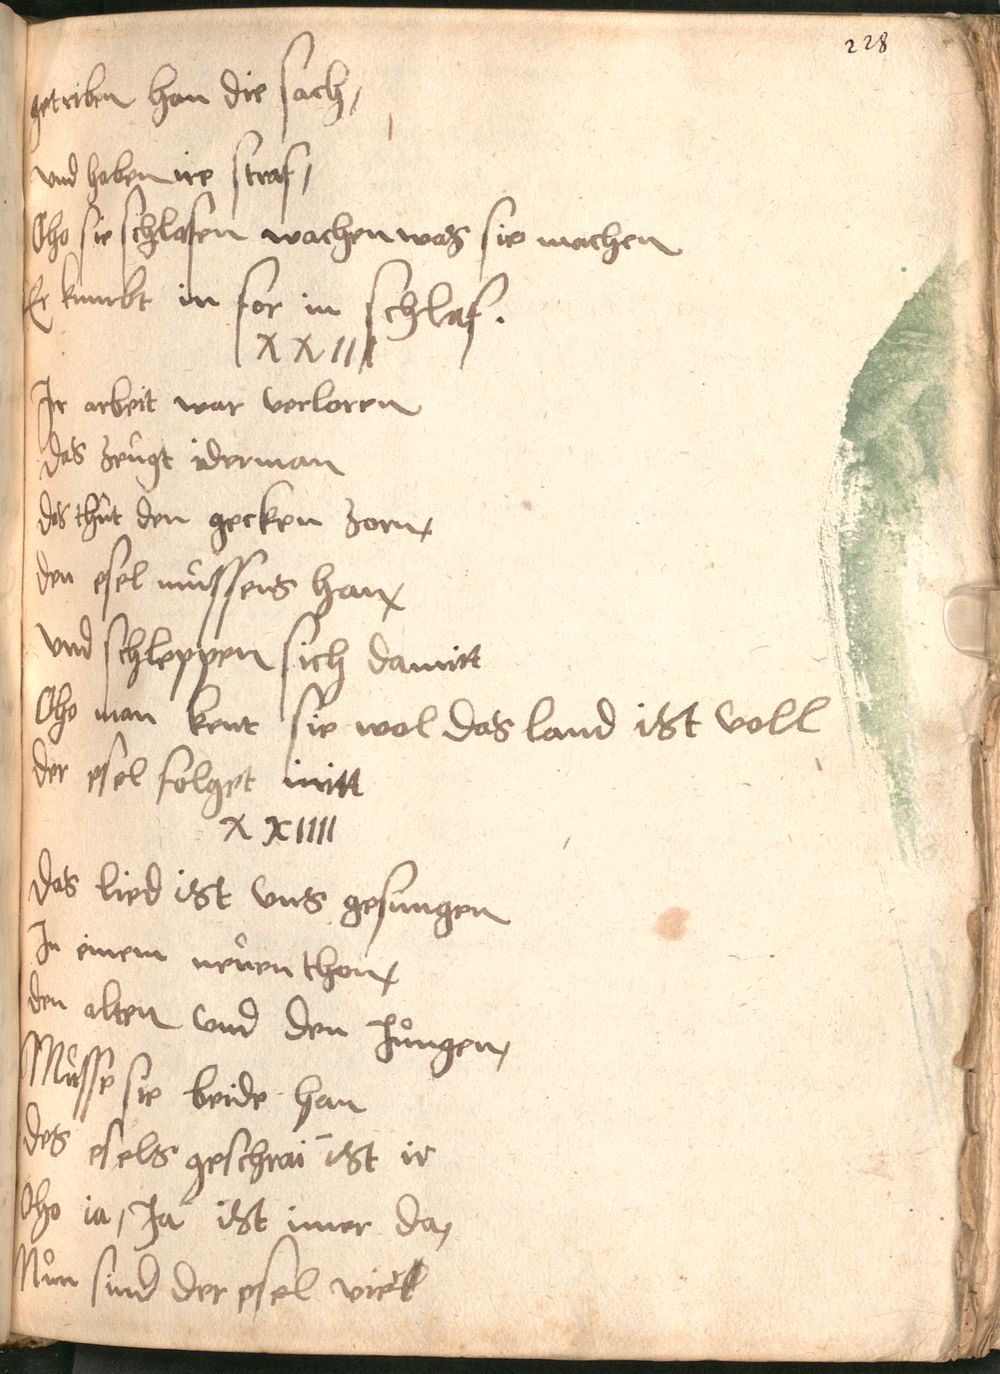 228
getriben han die sach,
vnd haben ire straf,
Oho sie schlafen wachen was sie machen
Er kumbt in for in schlaf.
XXIII
Ir arbeit war verloren
das zeugt iderman
das thut den gecken zorn,
den esel müssens han,
vnd schleppen sich damitt
Oho man kent sie wol das land ist voll
der esel folget mitt
XXIIII
Das lied ist vns gesungen
In einem neuen thon,
den alten vnd den Jungen,
Müsse sie beide han
des esels geschrai ist ir
Oho ia, Ja ist imer da,
Nun sind der esel viel